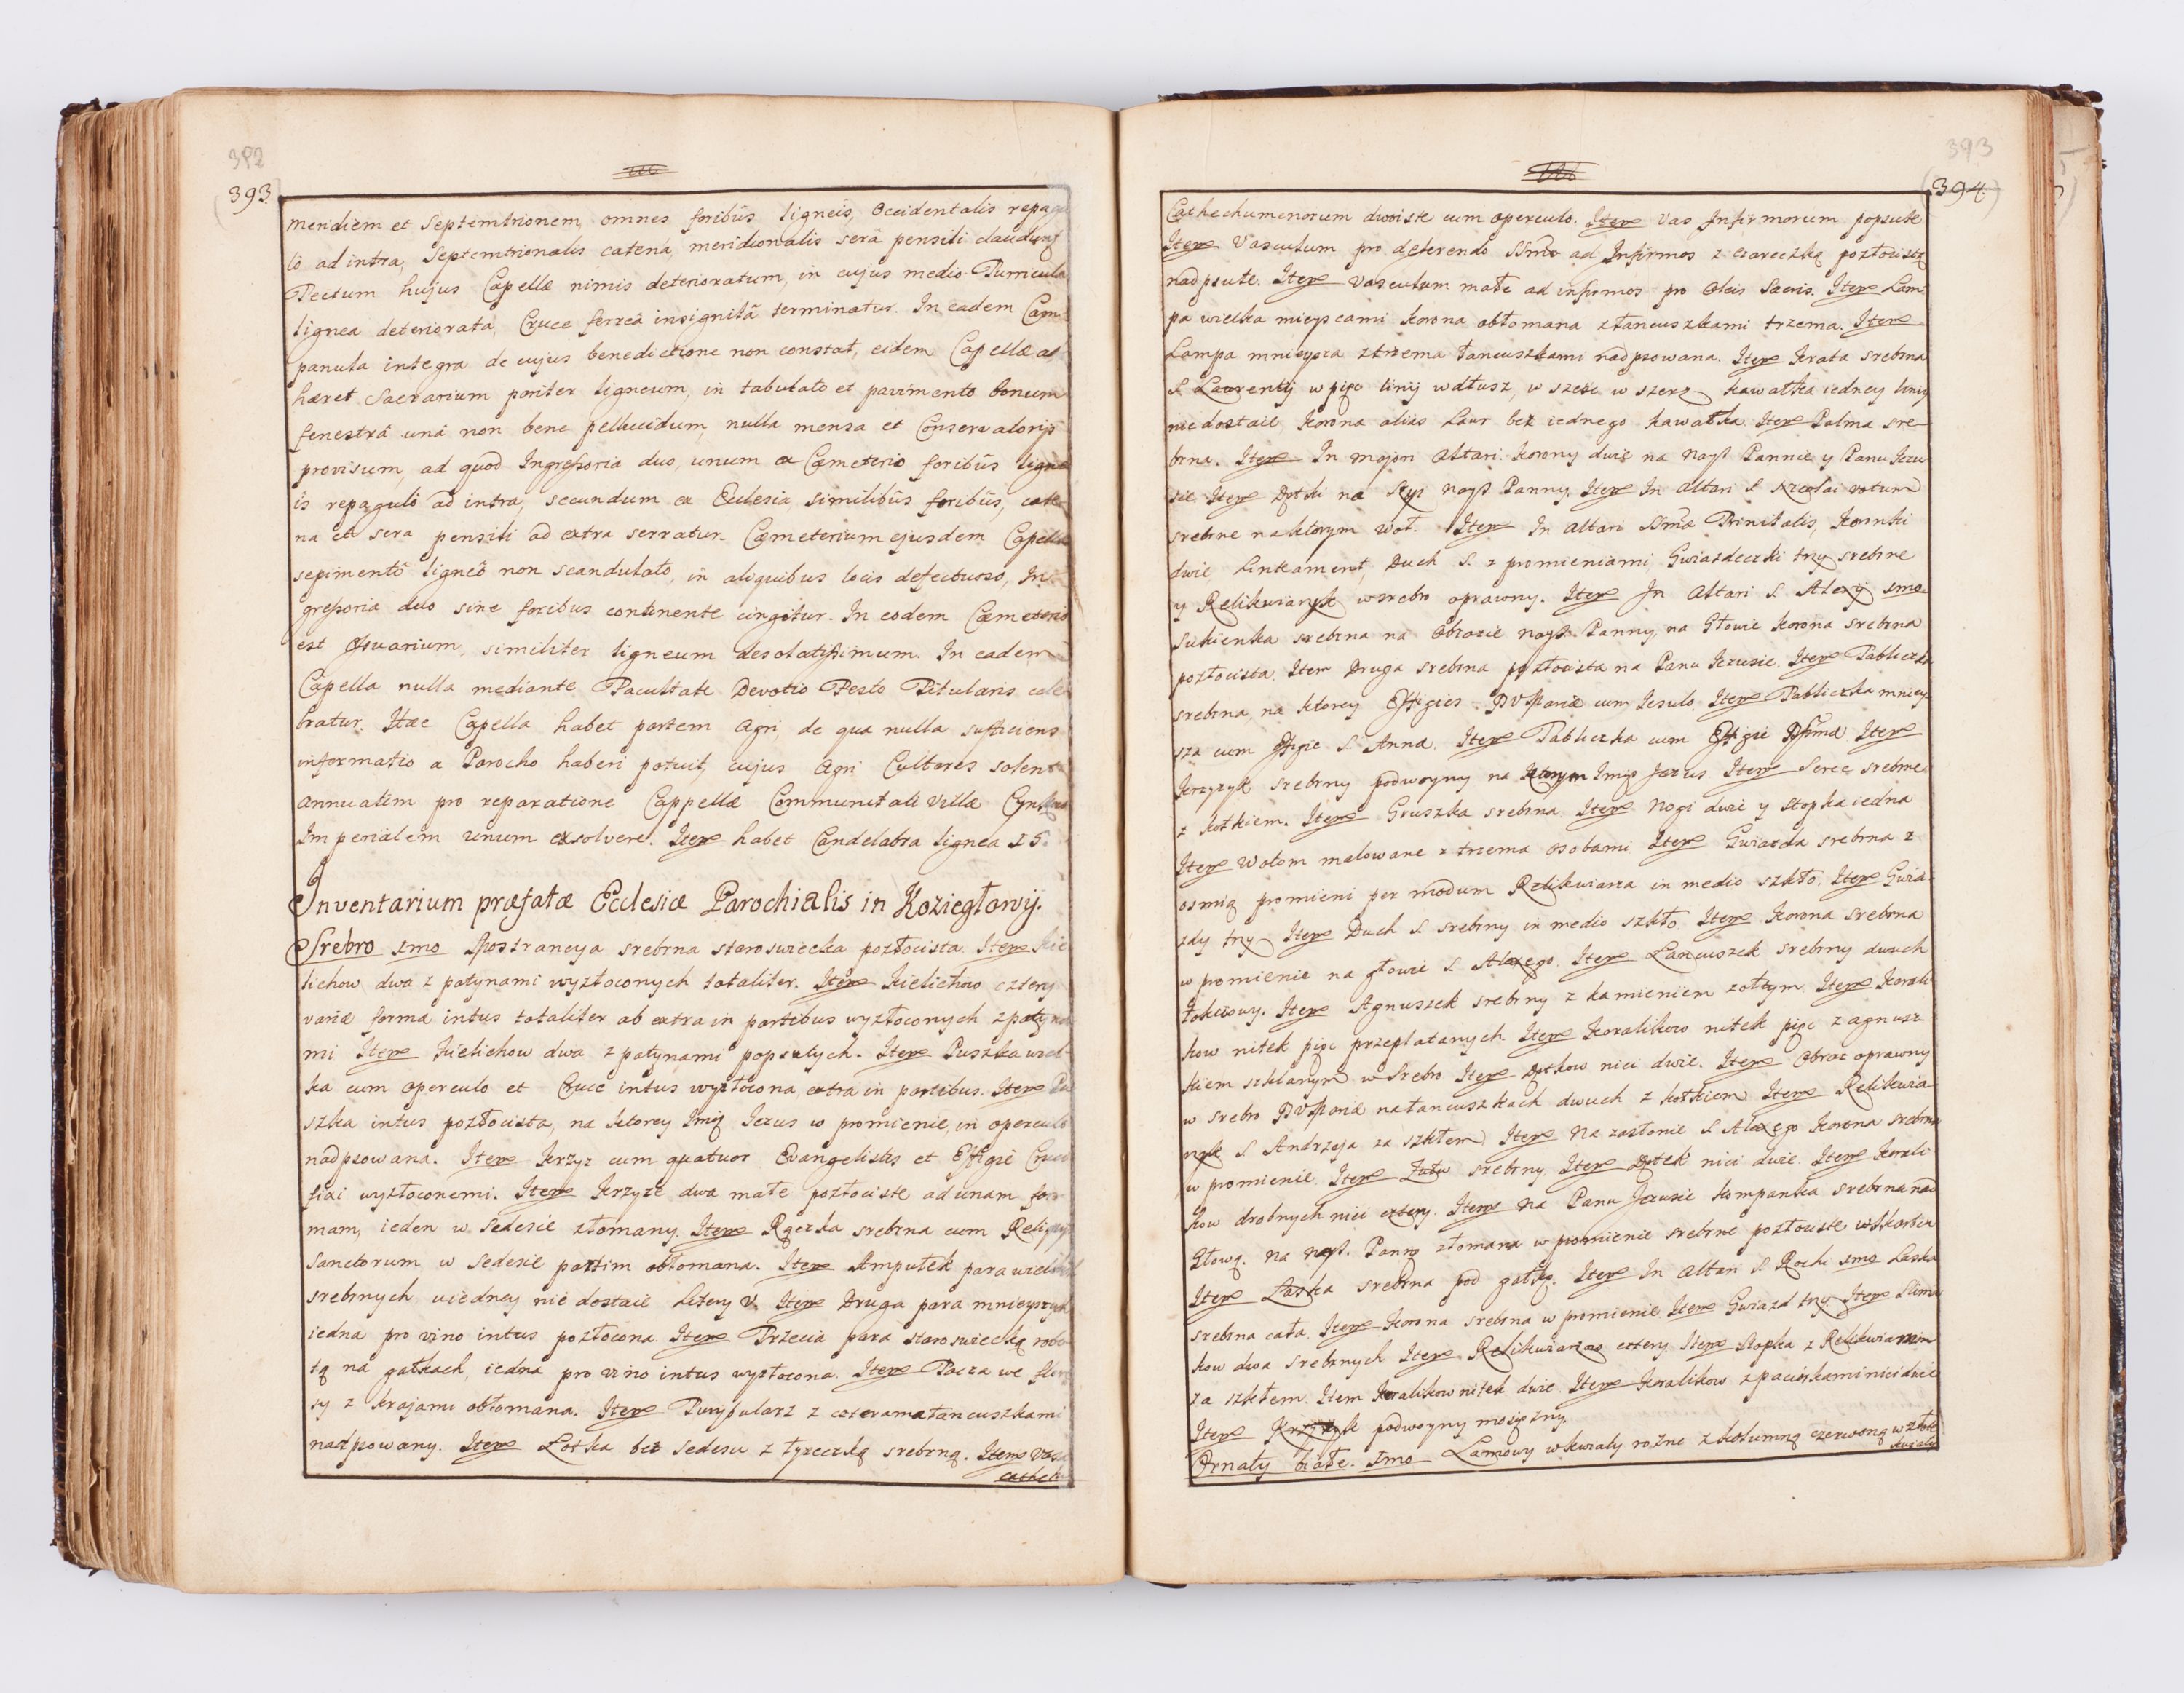 392
393.
meridiem et Septemtrionem, omnes foribus ligneis, Occidentalis repagu
lô ad intra, Septemtrionalis catenâ, meridionalis serâ pensili clauduntᷣ
Tectum hujus Capellæ nimis deterioratum, in cujus medio Turricula
lignea deteriorata, Cruce ferreâ insignitâ terminatur. In eadem Cam
panula integra de cujus benedictione non constat, eidem Capellæ ad
hæret Sacrarium pariter ligneum, in tabulato et pavimento bonum
fenestrâ unâ non bene pellucidum, nulla mensa et Conservatorio
provisum, ad quod Ingressoria duo, unum ex Cœmeterio foribus ligne
is repagulô ad intra, secundum ex Ecclesia similibus foribus, cate
na et sera pensili ad extra serratur. Cœmeterium ejusdem Capellæ
sepimentô ligneô non scandulato, in aliquibus locis defectuoso, In
gressoria duo sine foribus continente cingitur. In eodem Cœmeterio
est Ossuarium, similiter ligneum desolatissimum. In eadem
Capella nulla mediante Facultate Devotio Festo Titularis cele
bratur. Hæc Capella habet partem agri, de qua nulla sufficiens
informatio a Parocho haberi potuit, cujus Agri Cultores solent
annuatim pro reparatione Cappellæ Communitati Villæ
Imperialem unum exsolvere. Item habet Candelabra lignea 15.
Inventarium præfatæ Ecclesiæ Parochialis in Koziegłowij.
Srebro 1mo Mostrancya srebrna staroswiecka pozłocista. Item Kie
lichow dwa z patynami wyzłoconych totaliter. Item Kielichow cztery
variæ forma intus totaliter ab extra in partibus wyzłoconych z patyna
mi Item Kielichow dwa z patynami popsutych. Item Puszka wiel-
ka cum operculo et Cruce intus wyzłocona extra in partibus. Item Pu
szka intus pozłocista, na ktorey Imię Jezus w promienie, in operculo
nadpsowana. Item Krzyz cum quatuor Evangelistis et Effigie Cruci
fixi wyzłoconemi. Item Krzyze dwa małe pozłociste ad unam for
mam, ieden w Sedesie złomany. Item Rączka srebrna cum Reliquijs
Sanctorum w Sedesie partim obłomana. Item Ampułek para wielkich
srebrnych u iedney nie dostaie Litery V. Item Druga para mnieyszych
iedna pro vino intus pozłocona. Item Trzecia para staroswiecką robo
tą na gałkach, iedna pro vino intus wyzłocona. Item Taca we flore
sy z krajami obłomana. Item Turybularz z czterema łancuszkami
nadpsowany. Item Łotka bez Sedesu z łyzeczką srebrną. Item Vasa
Cathchu
393
394.
Cathechumenorum dwoiste cum operculo. Item Vas Infirmorum popsute
Item Vasculum pro deferendo SSmo ad Infirmos z czareczką pozłocistą
nadpsute. Item Vasculum małe ad infirmos pro Oleis Sacris. Item Lam
pa wielka mieyscami korona obłomana z łancuszkami trzema. Item
Lampa mnieysza z trzema łancuszkami nadpsowana. Item Krata srebrna
S. Laurentij w pięc linij wdłusz, w szesc w szerz kawałka iedney linij
nie dostaie, Korona alias Laur bez iednego kawałka. Item Palma sre
brna. Item In majori Altari. Korony dwie na Nayś Pannie y Panu Jezu
sie Item na Szyi Nayś Panny. Item In Altari S. Nicolai votum
srebrne na ktorym Woł. Item In Altari SSmæ Trinitatis, Koronki
dwie Linteament, Duch S. z promieniami Gwiazdeczki trzy srebrne
y Relikwiarzyk w srebro oprawny. Item In Altari S. Alexij 1mo
Sukienka srebrna na Obrazie Nayś. Panny, na Głowie Korona srebrna
pozłocista, Item Druga srebrna pozłocista na Panu Jezusie. Item Tabliczka
srebrna, na ktorey Effigies B V Mariæ cum Jesulo. Item Tabliczka mniey
sza cum Effigie S. Annæ. Item Tabliczka cum Effigie Item
Krzyzyk srebrny podwoyny na ktorym Imię Jezus. Item Serce srebrne
z kołkiem. Item Gruszka srebrna. Item Nogi dwie y stopka iedna
Item Wotom malowane z trzema osobami Item Gwiazda srebrna z
osmią promieni per modum Relikwiarza in medio szkło. Item Gwia
zdy trzy Item Duch S. srebrny in medio szkło. Item Korona srebrna
w promienie na głowie S. Alexego. Item Łancuszek srebrny dwuch
łokciowy. Item Agnuszek srebrny z kamieniem zołtym Item Korali
kow nitek pięc przeplatanych. Item Koralikow nitek pięc z agnusz
kiem szklanym w srebro Item nici dwie. Item Obraz oprawny
w srebro B V Mariæ na łancuszkach dwuch z kołkiem Item Relikwia
rzyk S. Andrzeja za szkłem Item Na zasłonie S. Alexego Korona srebrna
w promienie. Item srebrny. Item nici dwie. Item Korali
kow drobnych nici cztery. Item Na Panu Jezusie kompanka srebrna nad
Głową. Na Nayś. Panną złomana w promienie srebrne pozłociste w
Item Laska srebrna pod gałkę. Item In Altari S. Rochi 1mo Laska
srebrna cała. Item Korona srebrna w promienie Item Gwiazd trzy Item Slima
kow dwa srebrnych Item Relikwiarzow cztery. Item Stopka z Relikwiarzem
za szkłem. Item Koralikow nitek dwie Item Koralikow z paciorkami nici dwie
Item Krzyzyk podwoyny mosięzny.
Ornaty białe. 1mo Lamowy w kwiaty rozne z kolumną czerwoną w złote
kwiaty